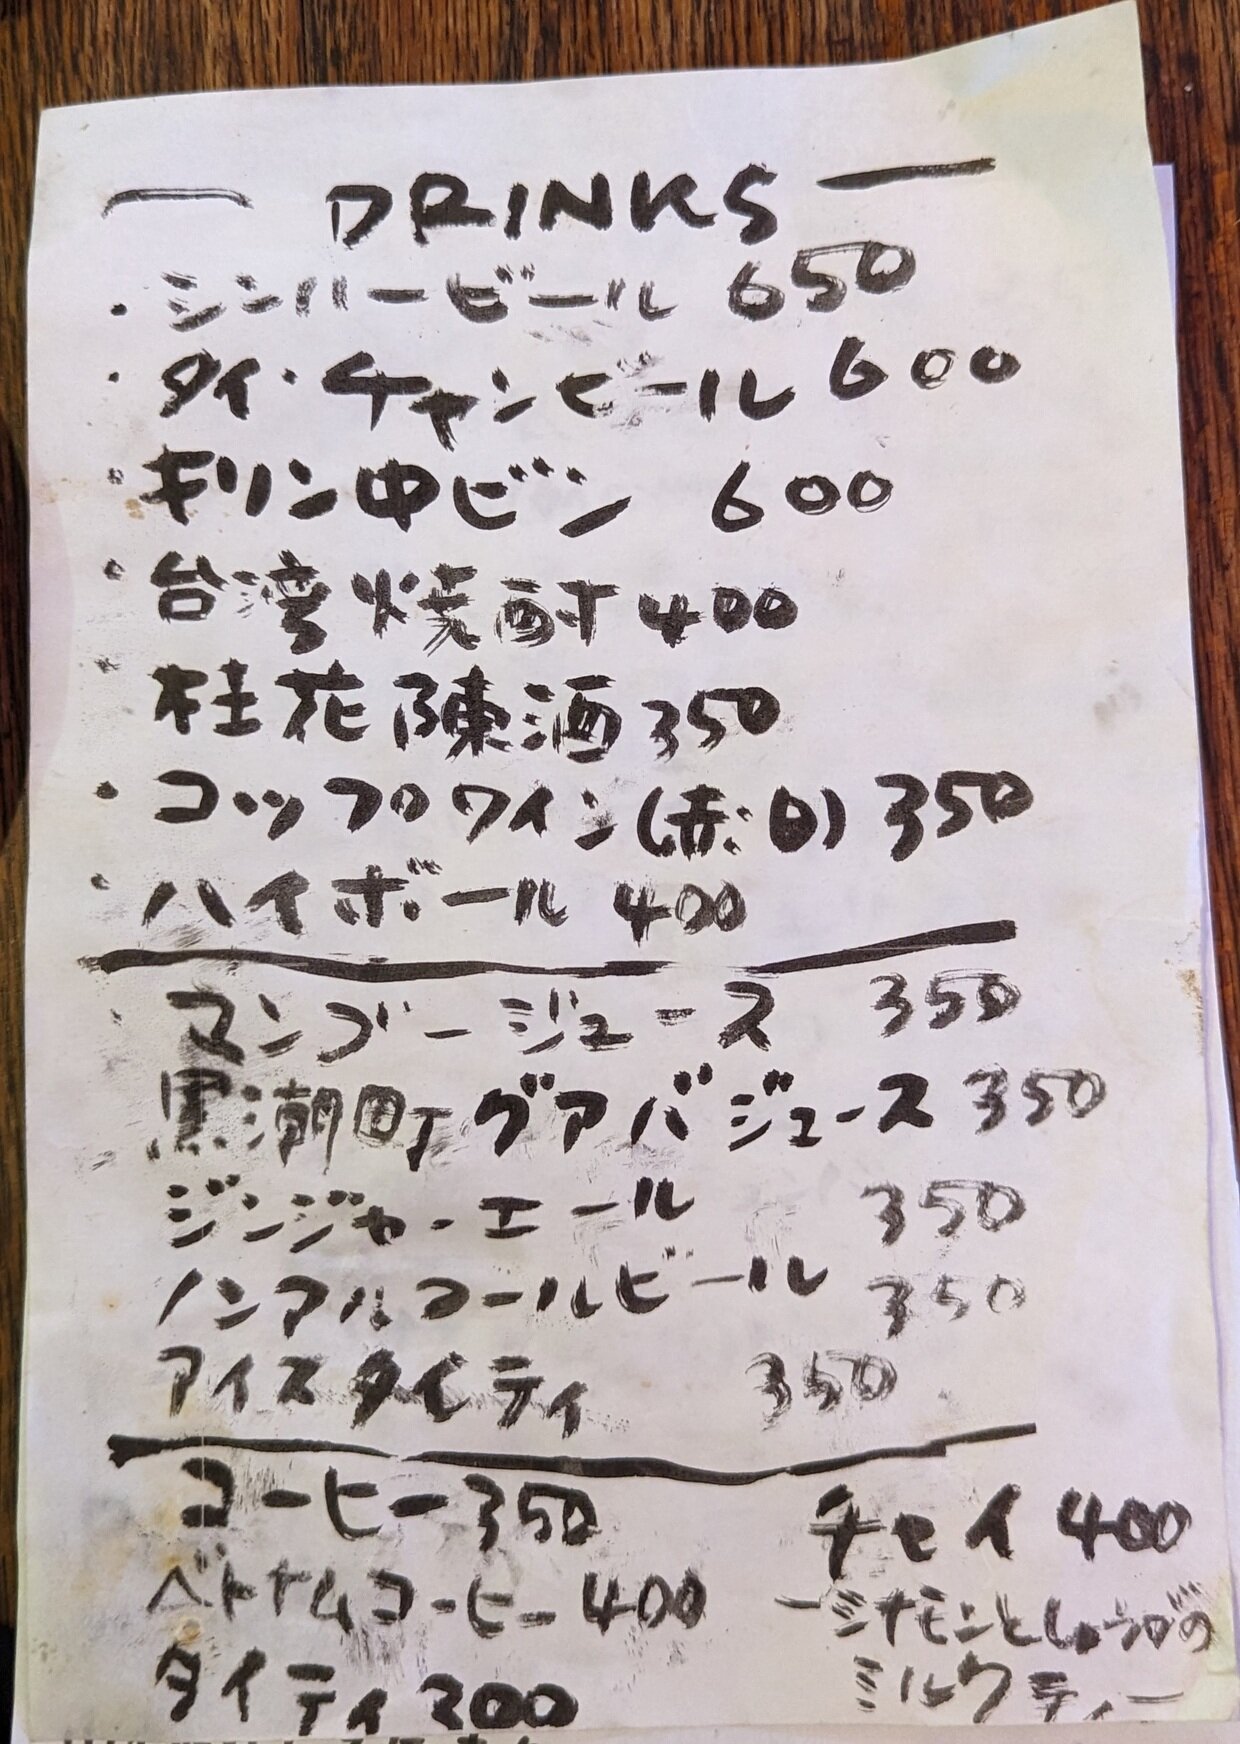 DRINKS
・シンハービール 650
・タイ・チャンビール 600
・キリン中ビン 600
・台湾焼酎 400
・桂花陳酒 350
・コップワイン(赤・白) 350
・ハイボール 400
・マンゴージュース 350
黒潮町グアバジュース 350
ジンジャーエール 350
ノンアルコールビール 350
アイスタイティ 350
コーヒー 350
ベトナムコーヒー 400
タイティ 300
チャイ 400
ーシナモンとしょうがの
ミルクティー